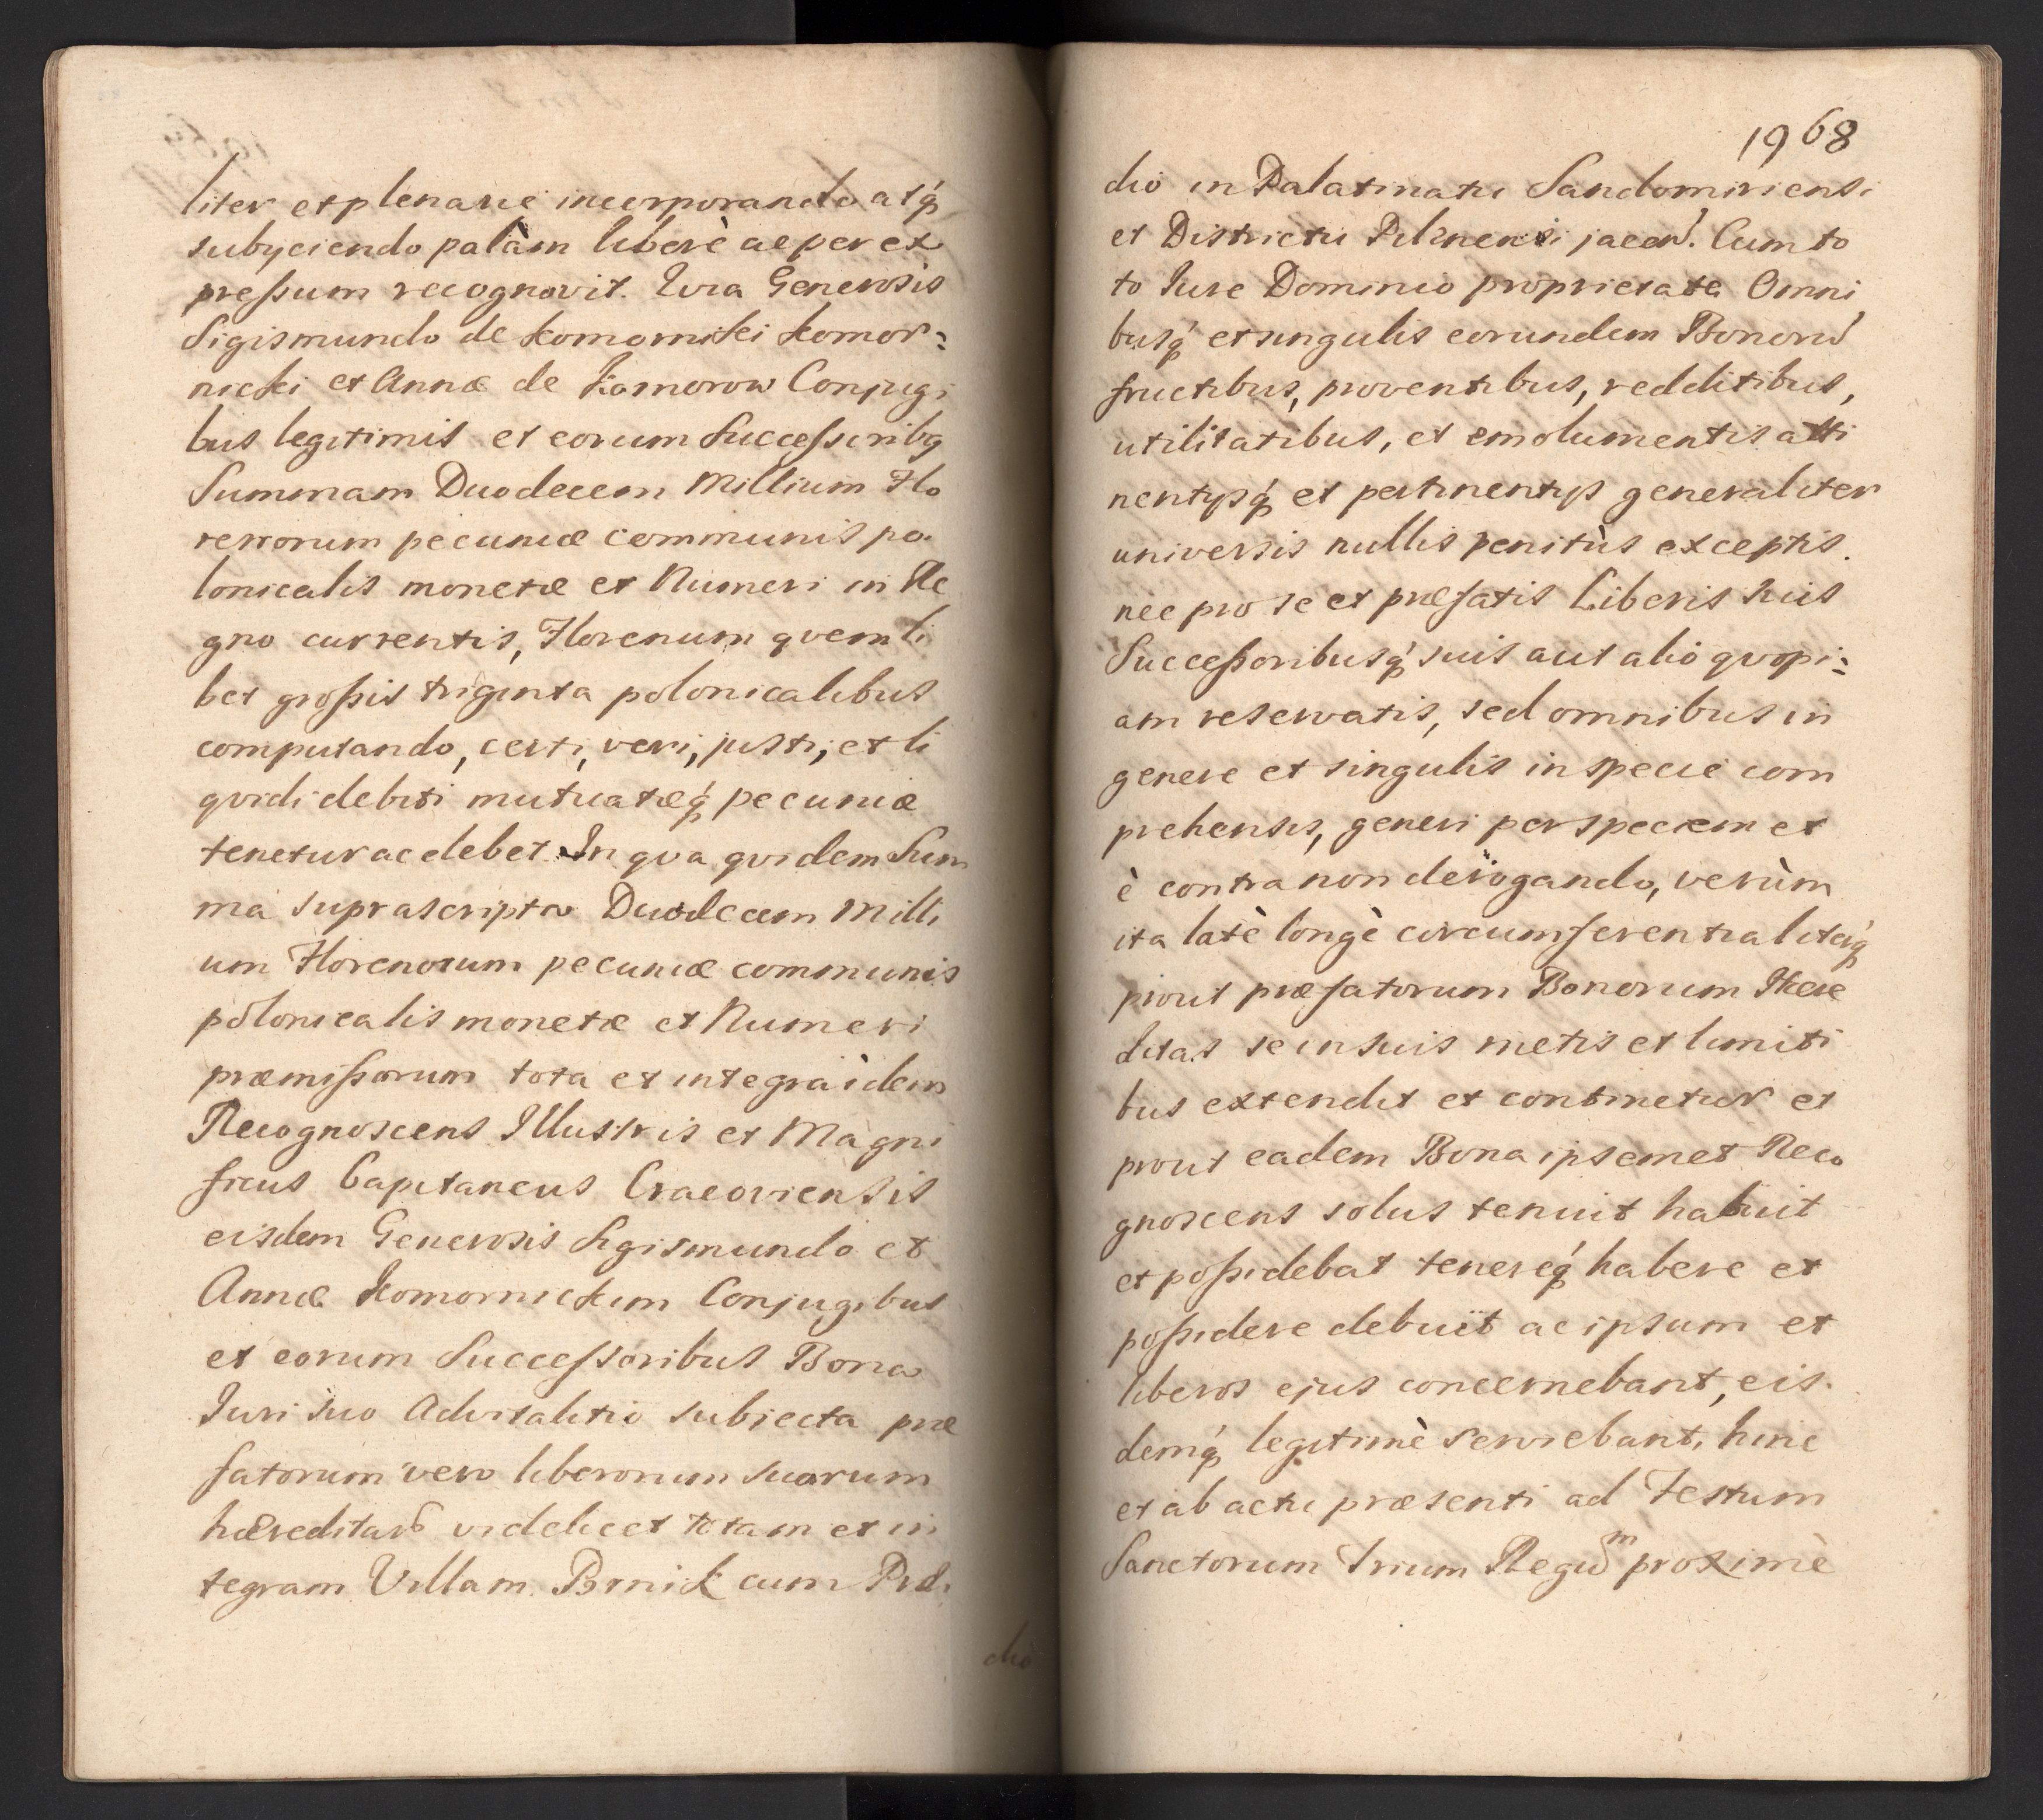 liter et plenarie incorporando atq́
subyciendo palàm liberè ac per ex
preſsum recognovit. Qvia Generosis
Sigismundo de Komorniki Komor:
nicki et Annæ de Komorow Conjugi
bus legitimis et eorum Succeſsoribq
Summam Duodecem Millium Flo
renorum pecuniæ communis po.
lonicalis monetæ et Numeri in Re
gno currentis, Florenum qvemli
bet groſsis triginta polonicalibus
computando, certi, veri, justi, et li
qvidi debiti mutuatæq́ pecuniæ
tenetur ac debet. In qva qvidem Sum
ma suprascripta Duodecem Milli
um Florenorum pecuniæ communis
polonicalis monetæ et Numeri
præmiſsorum tota et integra idem
Recognoscens Illustris et Magni
ficus Capitaneus Cracoviensis
eisdem Generosis Sigismundo et
Annæ Komornickim Conjugibus
et eorum Succeſsoribus Bona
Juri suo Advitalitio subiecta præ
fatorum vero liberorum suorum
hæreditar̃ videlicet totam et in
tegram Villam Brnik cum Prædi
dio
1968
dio in Palatinatu Sandomiriensi
et Districtu Pilznensi jacen̄. Cum to
to Jure Dominio proprietate Omni
busq́ et singulis eorundem Bonorũ
fructibus, proventibus, redditibus,
utilitatibus, et emolumentis atti
nentysq́ et pertinentys generaliter
universis nullis penitùs exceptis.
nec pro se et præfatis Liberis suis
Succeſsoribusq́ suis aut alio qvopi:
am reservatis, sed omnibus in
genere et singulis in specie com
prehensis, generi per speciem et
è contra non derogando, verùm
ita latè longè circumferentialiterq́
prout præfatorum Bonorum Hære
ditas se in suis metis et limiti
bus extendit et continetur et
prout eadem Bona ipsemet Reco
gnoscens solus tenuit habuit
et poſsidebat tenereq́ habere et
poſsidere debuit ac ipsum et
liberos ejus concernebant, eis.
demq́ legitimè serviebant, hinc
et ab actu præsenti ad Festum
Sanctorum Trium Regũm proximè